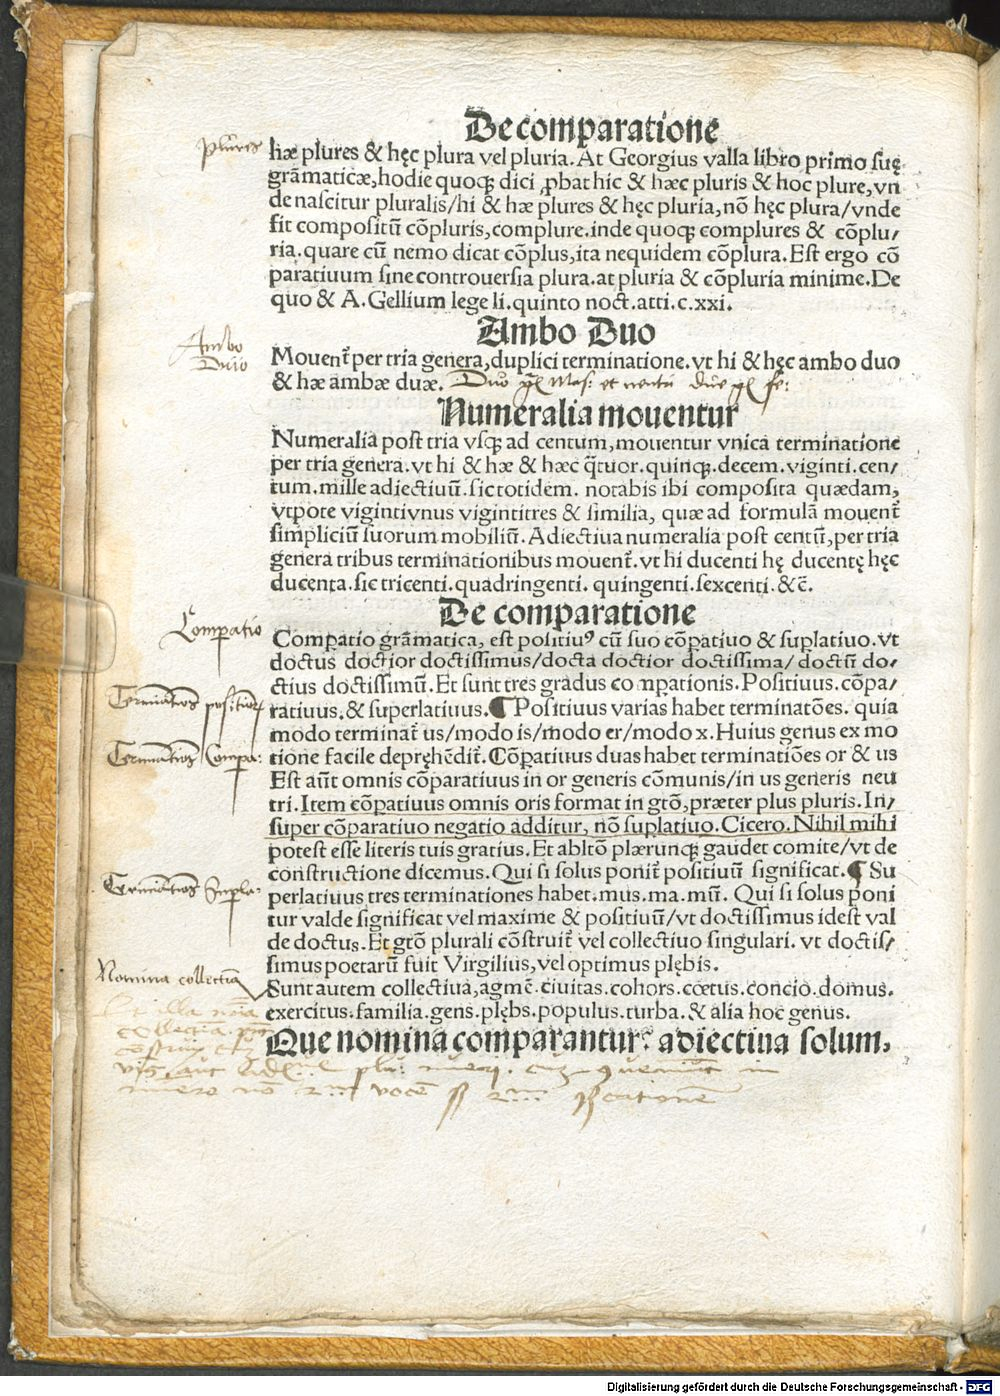 De comparatione
plures
hæ plures & hęc plura vel pluria. At Georgius valla libro primo suę
grāmaticæ, hodie quoqꝫ dici ꝓbat hic & hæc pluris & hoc plure, vn
de nascitur pluralis/hi & hæ plures & hęc pluria, nō hęc plura/vnde
fit compositū cōpluris, complure. inde quoqꝫ complures & cōplu/
ria. quare cū nemo dicat cōplus, ita nequidem cōplura. Est ergo cō
paratiuum sine controuersia plura. at pluria & cōpluria minime. De
quo & A. Gellium lege li. quinto noct. atti. c. xxi.
Ambo Duo
Ambo
Duo
Mouent̄ per tria genera, duplici terminatione. vt hi & hęc ambo duo
& hæ ambæ duæ. Duo Mas: et neutri due fe:
Numeralia mouentur
Numeralia post tria vsqꝫ ad centum, mouentur vnica terminatione
per tria genera. vt hi & hæ & hæc q̄tuor. quinqꝫ. decem. viginti. cen/
tum. mille adiectiuū. sic totidem. notabis ibi composita quædam,
vtpote vigintivnus vigintitres & similia, quæ ad formulā mouent̄
simpliciū suorum mobiliū. Adiectiua numeralia post centū, per tria
genera tribus terminationibus mouent̄. vt hi ducenti hę ducentę hęc
ducenta. sic tricenti. quadringenti. quingenti. sexcenti. &c̄.
De comparatione
Comparatio
Compatio grāmatica, est positiuꝰ cū suo cōpatiuo & suplatiuo. vt
doctus doctior doctissimus/docta doctior doctissima/ doctū do/
ctius doctissimū. Et sunt tres gradus compationis. Positiuus. cōpa/
ratiuus. & superlatiuus. ¶ Positiuus varias habet terminatōes. quia
modo terminat̄ us/modo is/modo er/modo x. Huius genus ex mo
tione facile depręhēdit̄. Cōpatiuus duas habet terminatiōes or & us
Est aūt omnis cōparatiuus in or generis cōmunis/in us generis neu
tri. Item cōpatiuus omnis oris format in gtō, præter plus pluris. In/
super cōparatiuo negatio additur, nō suplatiuo. Cicero. Nihil mihi
potest esse literis tuis gratius. Et abltō plærunqꝫ gaudet comite/vt de
cōstructione dicemus. Qui si solus ponit̄ positiuū significat. ¶ Su
perlatiuus tres terminationes habet. mus. ma. mū. Qui si solus poni
tur valde significat vel maxime & positiuū/vt doctissimus idest val
de doctus. Et gtō plurali cōstruit̄ vel collectiuo singulari. vt doctis/
simus poetarū fuit Virgilius, vel optimus plębis.
Nomina collectiua
Sunt autem collectiua, agmē. ciuitas. cohors. cœtus. concio. domus.
exercitus. familia. gens. plębs. populus. turba. & alia hoc genus.
Que nomina comparantur? adiectiua solum.
Digitalisierung gefördert durch die Deutsche Forschungsgemeinschaft - DFG